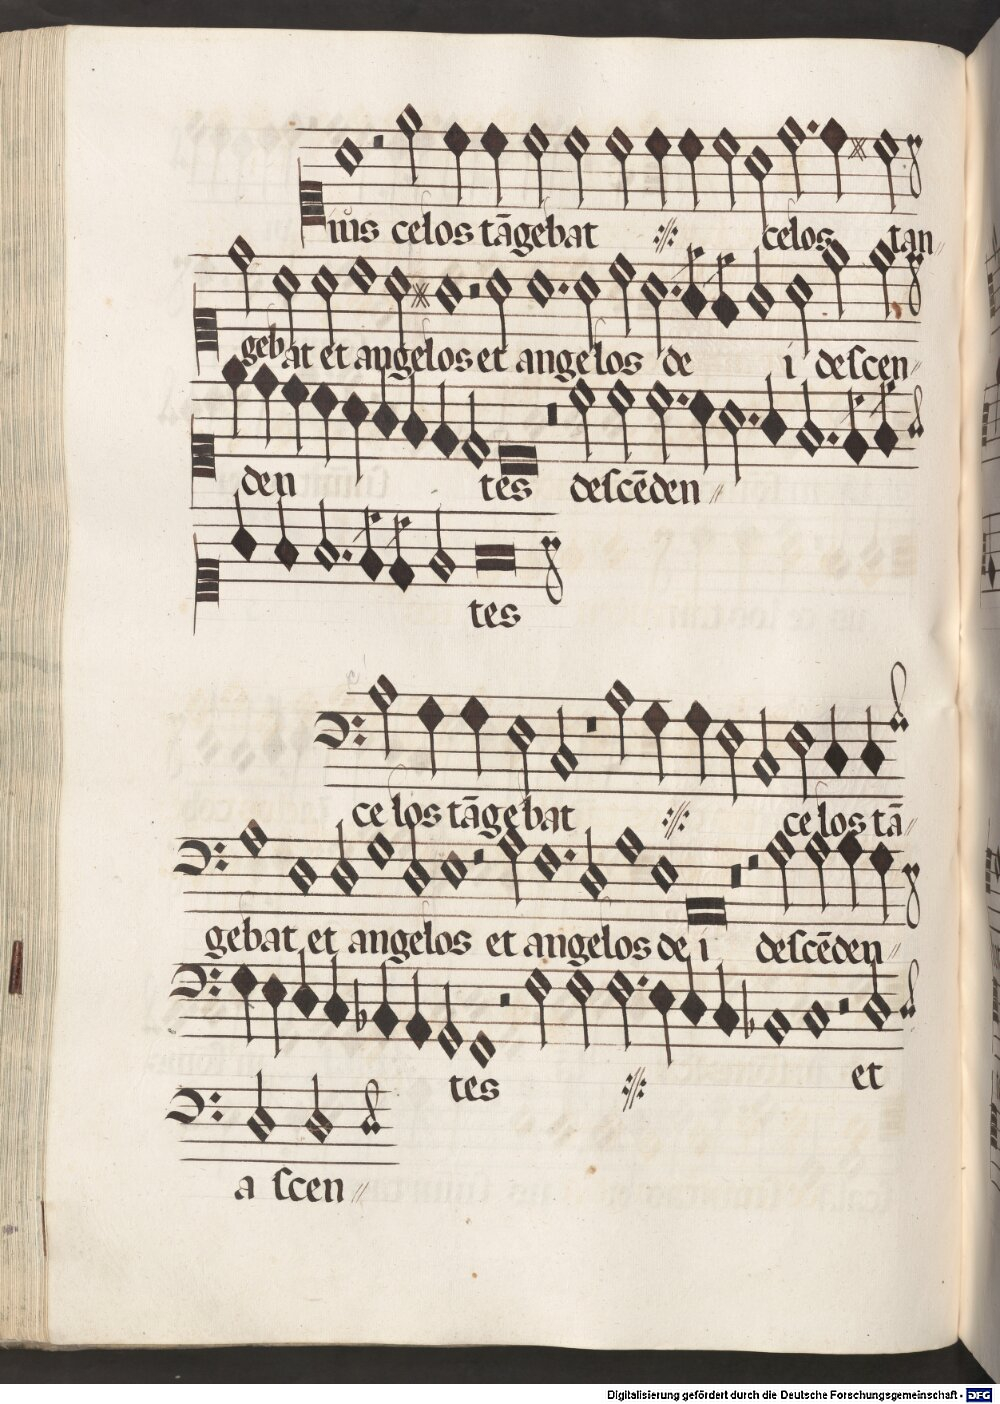 ius celos tāgebat ://: celos tan
gebat et angelos et angelos de i descen
den tes descēden
tes
celos tāgebat ://: celos tā
gebat et angelos et angelos de i descēden
tes ://: et
a scen
Digitalisierung gefördert durch die Deutsche Forschungsgemeinschaft - DFG